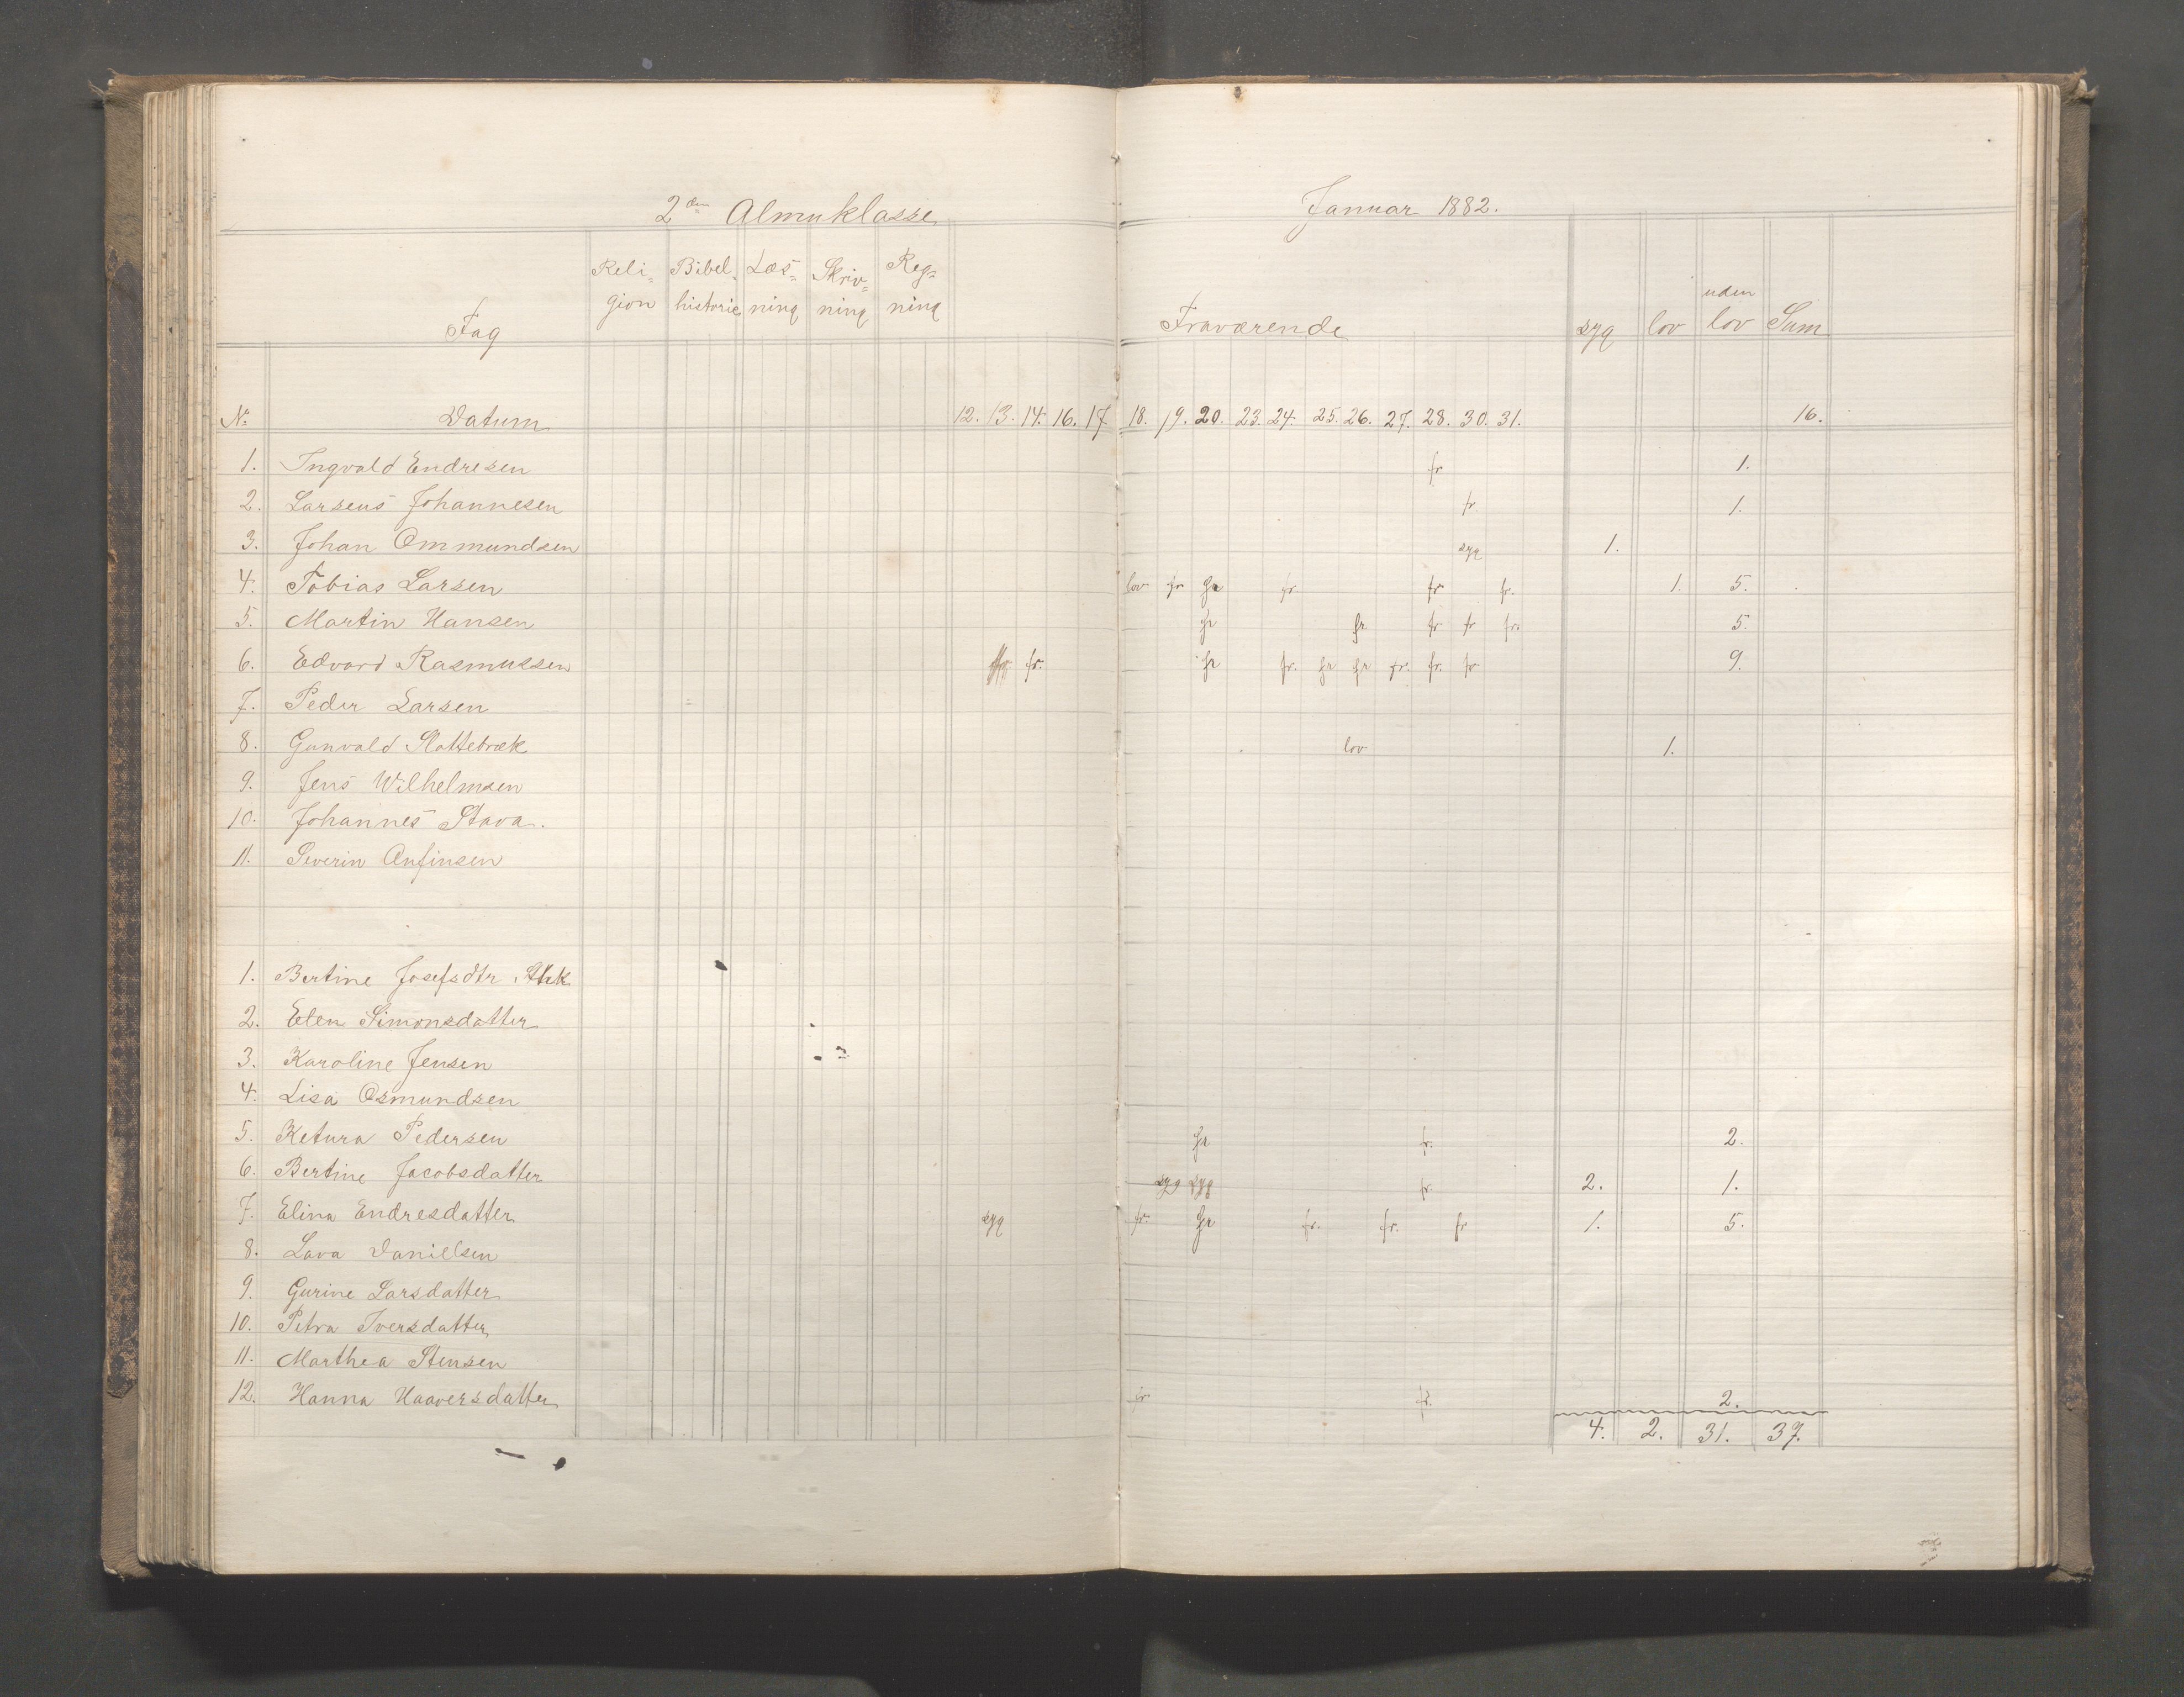 2den Almuklasse Januar 1882.
Fag Reli= gion Bibel= historie Læs= ning Skriv= ning Reg= ning Fraværende syg lov uden lov Sum
No Datum 12. 13. 14. 16. 17 18. 19. 20. 23. 24. 25. 26. 27. 28. 30. 31. 16.
1. Ingvald Endresen fr 1.
2. Larseus Johannesen fr. 1.
3. Johan Ommundsen syg 1.
4. Tobias Larsen lov fr fr fr. fr fr. 1. 5.
5. Martin Hansen fr fr fr fr fr. 5.
6. Edvard Rasmussen fr. fr fr. fr fr fr. fr. fr. 9.
7. Peder Larsen
8. Gunvald Slottebræk lov 1.
9. Jens Wilhelmsen
10. Johannes Stava.
11. Severin Anfinsen
1. Bertine Josefsdtr.
2. Elen Simonsdatter
3. Karoline Jensen
4. Lisa Osmundsen
5. Ketura Pedersen fr fr. 2.
6. Bertine Jacobsdatter syg syg fr. 2. 1.
7. Elina Endresdatter syg fr. fr fr. fr. fr 1. 5.
8. Lava Danielsen
9. Gurine Larsdatter
10. Petra Iversdatter
11. Marthea Stensen
12. Hanna Haaversdatter fr fr. 2.
4. 2. 31. 37.